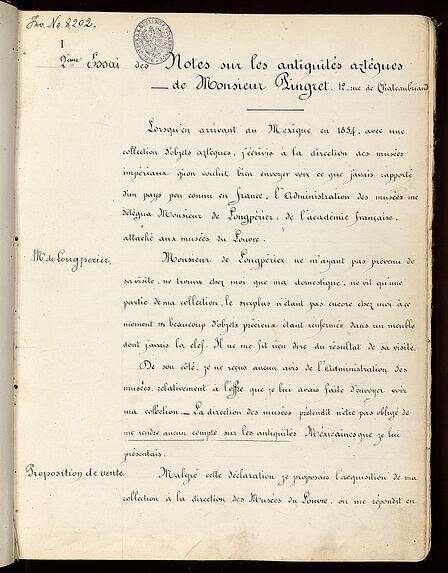 Inv. No. 8202.
1
2ème Essai des Notes sur les antiquités aztèques
de Monsieur Pingret. 12, rue de Chateaubriand
Lorsqu'en arrivant du Mexique en 1854, avec une
collection d'objets aztèques, j'écrivis à la direction des musées
impériaux qu'on voulut bien envoyer voir ce que j'avais rapporté
d'un pays peu connu en France, l'Administration des musées me
délégua Monsieur de Longpérier, de l'académie française,
attaché aux musées du Louvre.
Mr de Longperier.
Monsieur de Longpérier ne m'ayant pas prevenu de
sa visite, ne trouva chez moi que ma domestique, ne vit qu'une
partie de ma collection, le surplus n'étant pas encore chez moi à ce
moment & beaucoup d'objets précieux étant renfermés dans un meuble
dont j'avais la clef. Il ne me fit rien dire du résultat de sa visite.
De son côté, je ne reçus aucun avis de l'Administration des
musées, relativement à l'offre que je lui avais faite d'envoyer voir
ma collection. — La direction des musées prétendit n'être pas obligé de
me rendre aucun compte sur les antiquités Méxicaines que je lui
présentais.
Proposition de vente.
Malgré cette déclaration je proposais l'acquisition de ma
collection à la direction des Musées du Louvre, on me répondit en